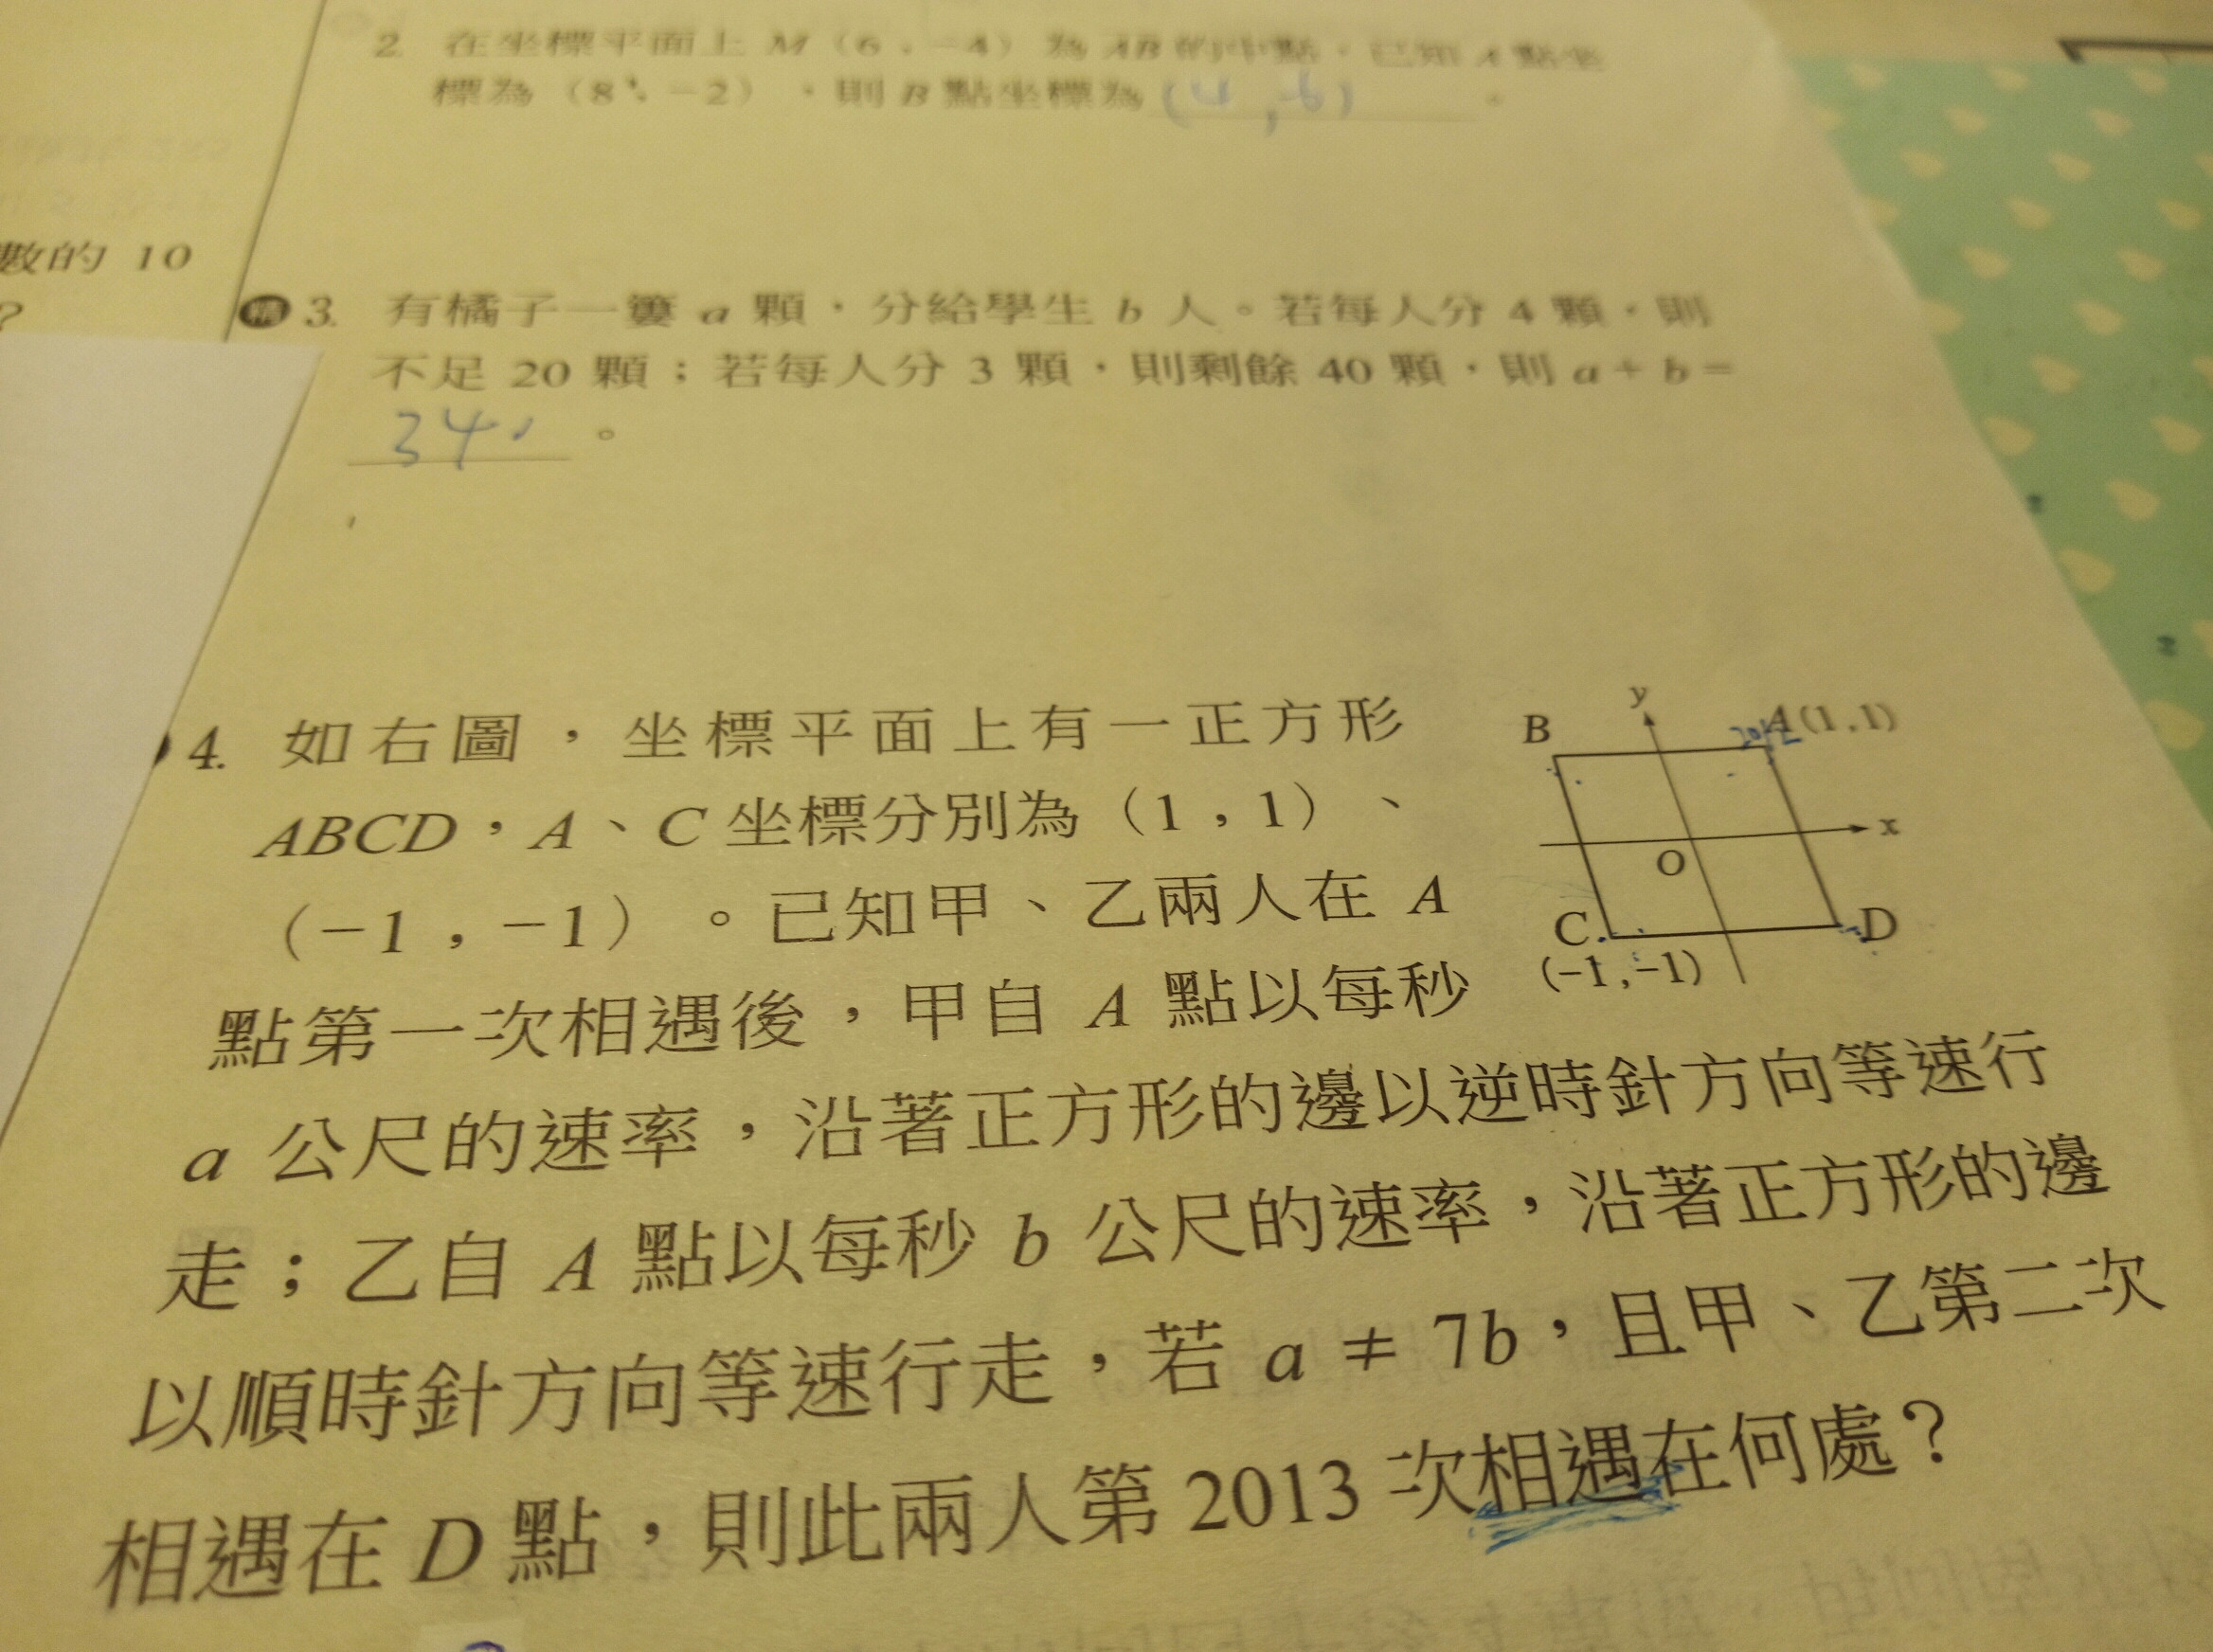 2. 在坐標平面上 M（6，－4）為 AB 的中點，已知 A 點坐
標為（8，－2），則 B 點坐標為 (4,-6) 。
數的 10
?
3. 有橘子一簍 a 顆，分給學生 b 人。若每人分 4 顆，則
不足 20 顆；若每人分 3 顆，則剩餘 40 顆，則 a + b =
340 。
4. 如右圖，坐標平面上有一正方形
ABCD，A、C 坐標分別為（1，1）、
（－1，－1）。已知甲、乙兩人在 A
點第一次相遇後，甲自 A 點以每秒
a 公尺的速率，沿著正方形的邊以逆時針方向等速行
走；乙自 A 點以每秒 b 公尺的速率，沿著正方形的邊
以順時針方向等速行走，若 a ≠ 7b，且甲、乙第二次
相遇在 D 點，則此兩人第 2013 次相遇在何處？
y
B
A(1,1)
x
O
C
D
(−1,−1)